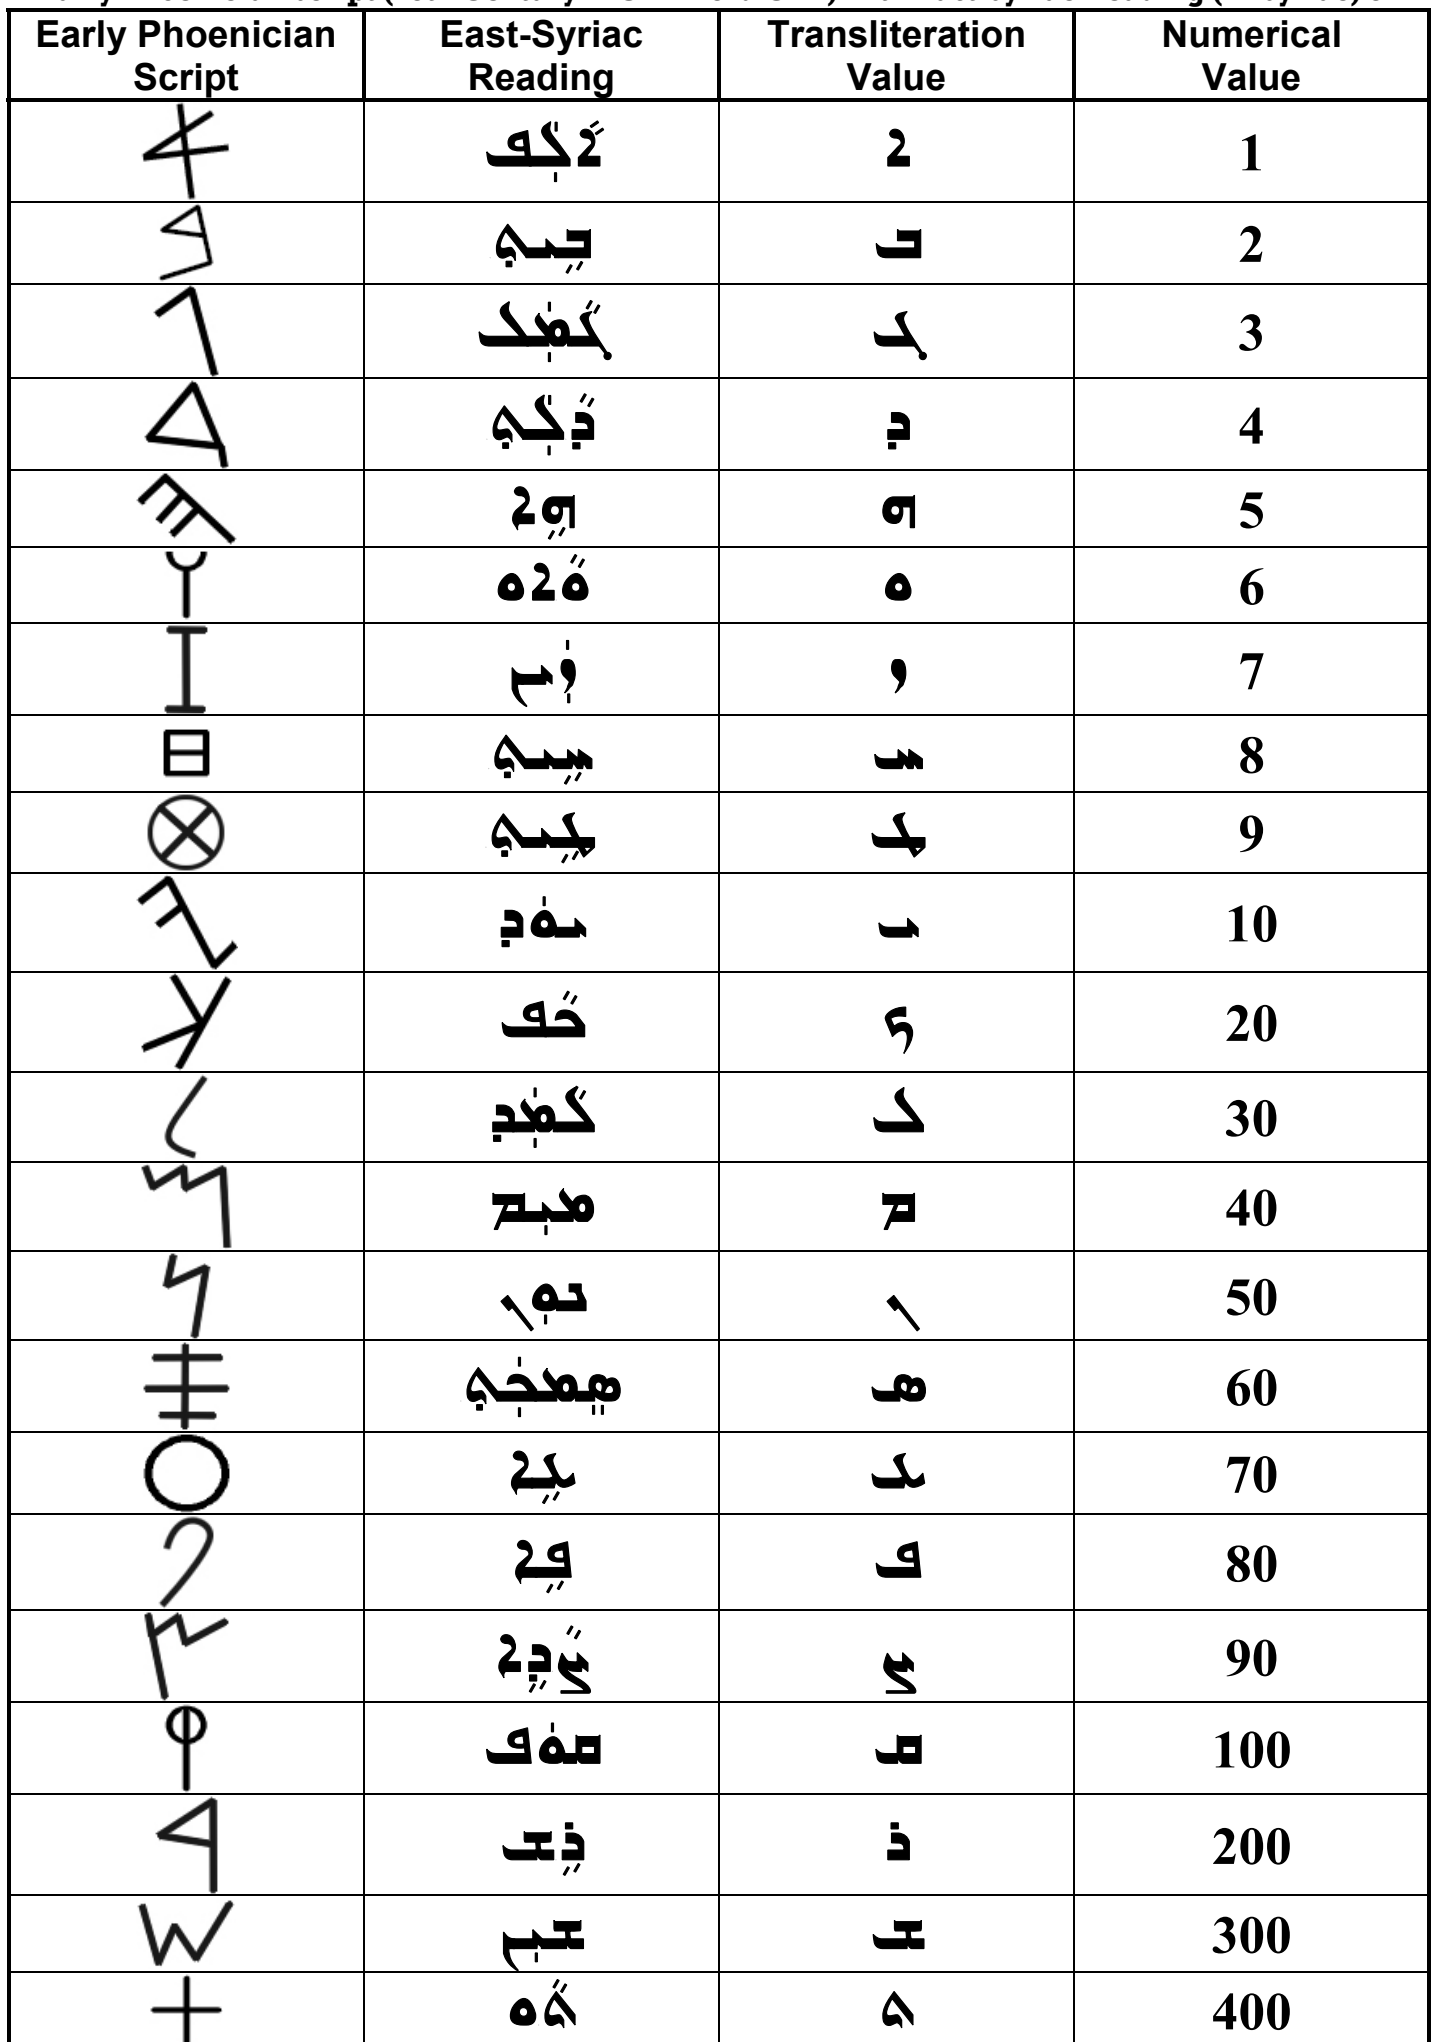 Early Phoenician Script East-Syriac Reading Transliteration Value Numerical Value
𐤀 ܐܵܠܲܦ ܐ 1
𐤁 ܒܹܝܬ ܒ 2
𐤂 ܓܵܡܲܠ ܓ 3
𐤃 ܕܵܠܲܬ ܕ 4
𐤄 ܗܹܐ ܗ 5
𐤅 ܘܵܐܘ ܘ 6
𐤆 ܙܲܝܢ ܙ 7
𐤇 ܚܹܝܬ ܚ 8
𐤈 ܛܹܝܬ ܛ 9
𐤉 ܝܘܿܕ ܝ 10
𐤊 ܟܵܦ ܟ 20
𐤋 ܠܵܡܲܕ ܠ 30
𐤌 ܡܝܼܡ ܡ 40
𐤍 ܢܘܼܢ ܢ 50
𐤎 ܣܸܡܟܲܬ ܣ 60
𐤏 ܥܹܐ ܥ 70
𐤐 ܦܹܐ ܦ 80
𐤑 ܨܵܕܹܐ ܨ 90
𐤒 ܩܘܿܦ ܩ 100
𐤓 ܪܹܫ ܪ 200
𐤔 ܫܝܼܢ ܫ 300
𐤕 ܬܵܘ ܬ 400